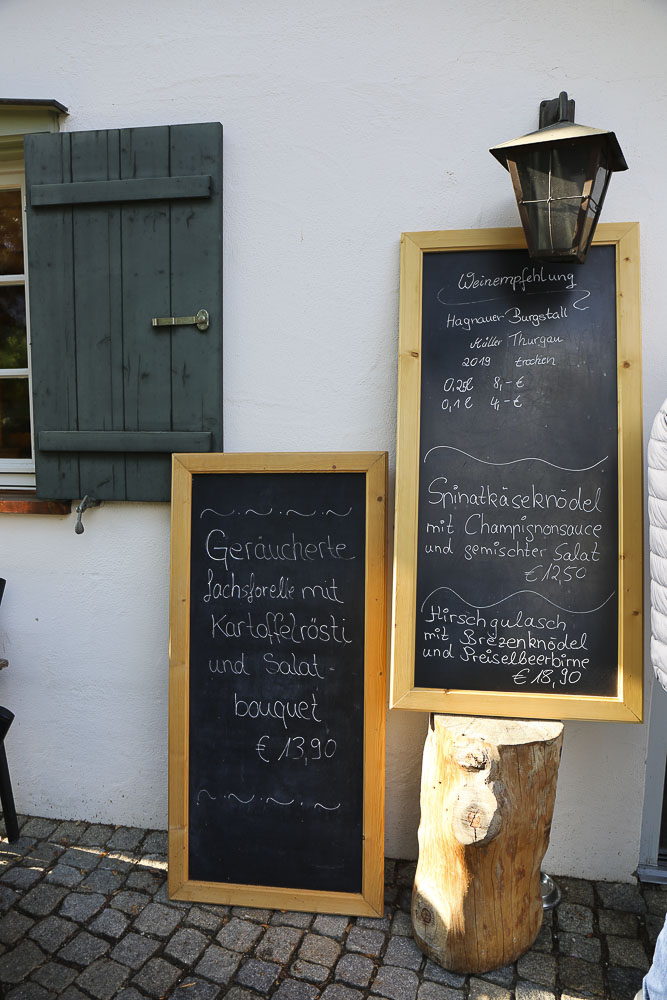 Geräucherte
Lachsforelle mit
Kartoffelrösti
und Salat-
bouquet
€ 13,90
Weinempfehlung
Hagnauer Burgstall
Müller Thurgau
2019 trocken
0,25l 8,- €
0,1 l 4,- €
Spinatkäseknödel
mit Champignonsauce
und gemischter Salat
€ 12,50
Hirschgulasch
mit Brezenknödel
und Preiselbeerbirne
€ 18,90